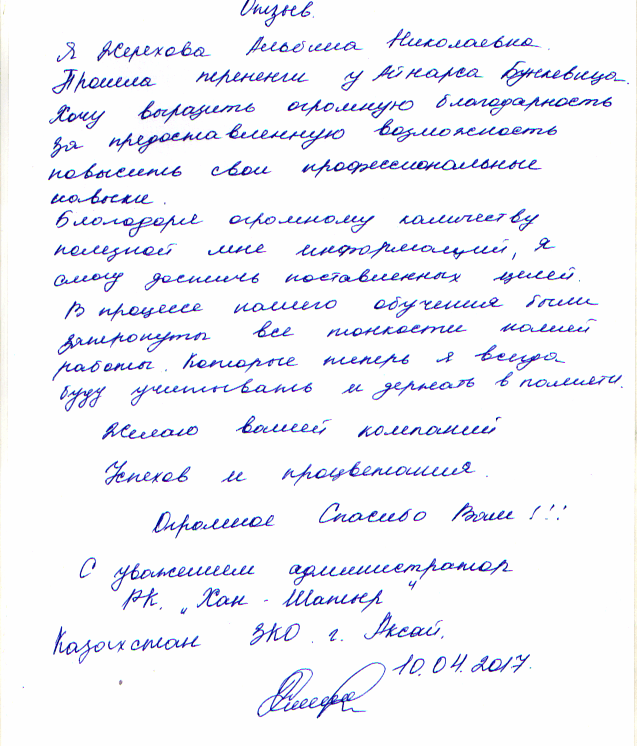 Отзыв.
Я Жерехова Альбина Николаевна.
Прошла тененги у Айнарса Бункевица.
Хочу выразить огромную благодарность
за предоставленную возможность
повысить свои профессиональные
навыки.
Благодаря огромному количеству
полезной мне информаций, я
смогу достичь поставленных целей.
В процессе нашего обучения были
затронуты все тонкости нашей
работы. Которые теперь я всегда
буду учитывать и держать в памяти.
Желаю вашей компаний
Успехов и процветания.
Огромное Спасибо Вам!!!
С уважением администратор
РК. "Хан - Шатыр"
Казахстан ЗКО. г. Аксай.
10.04.2017.